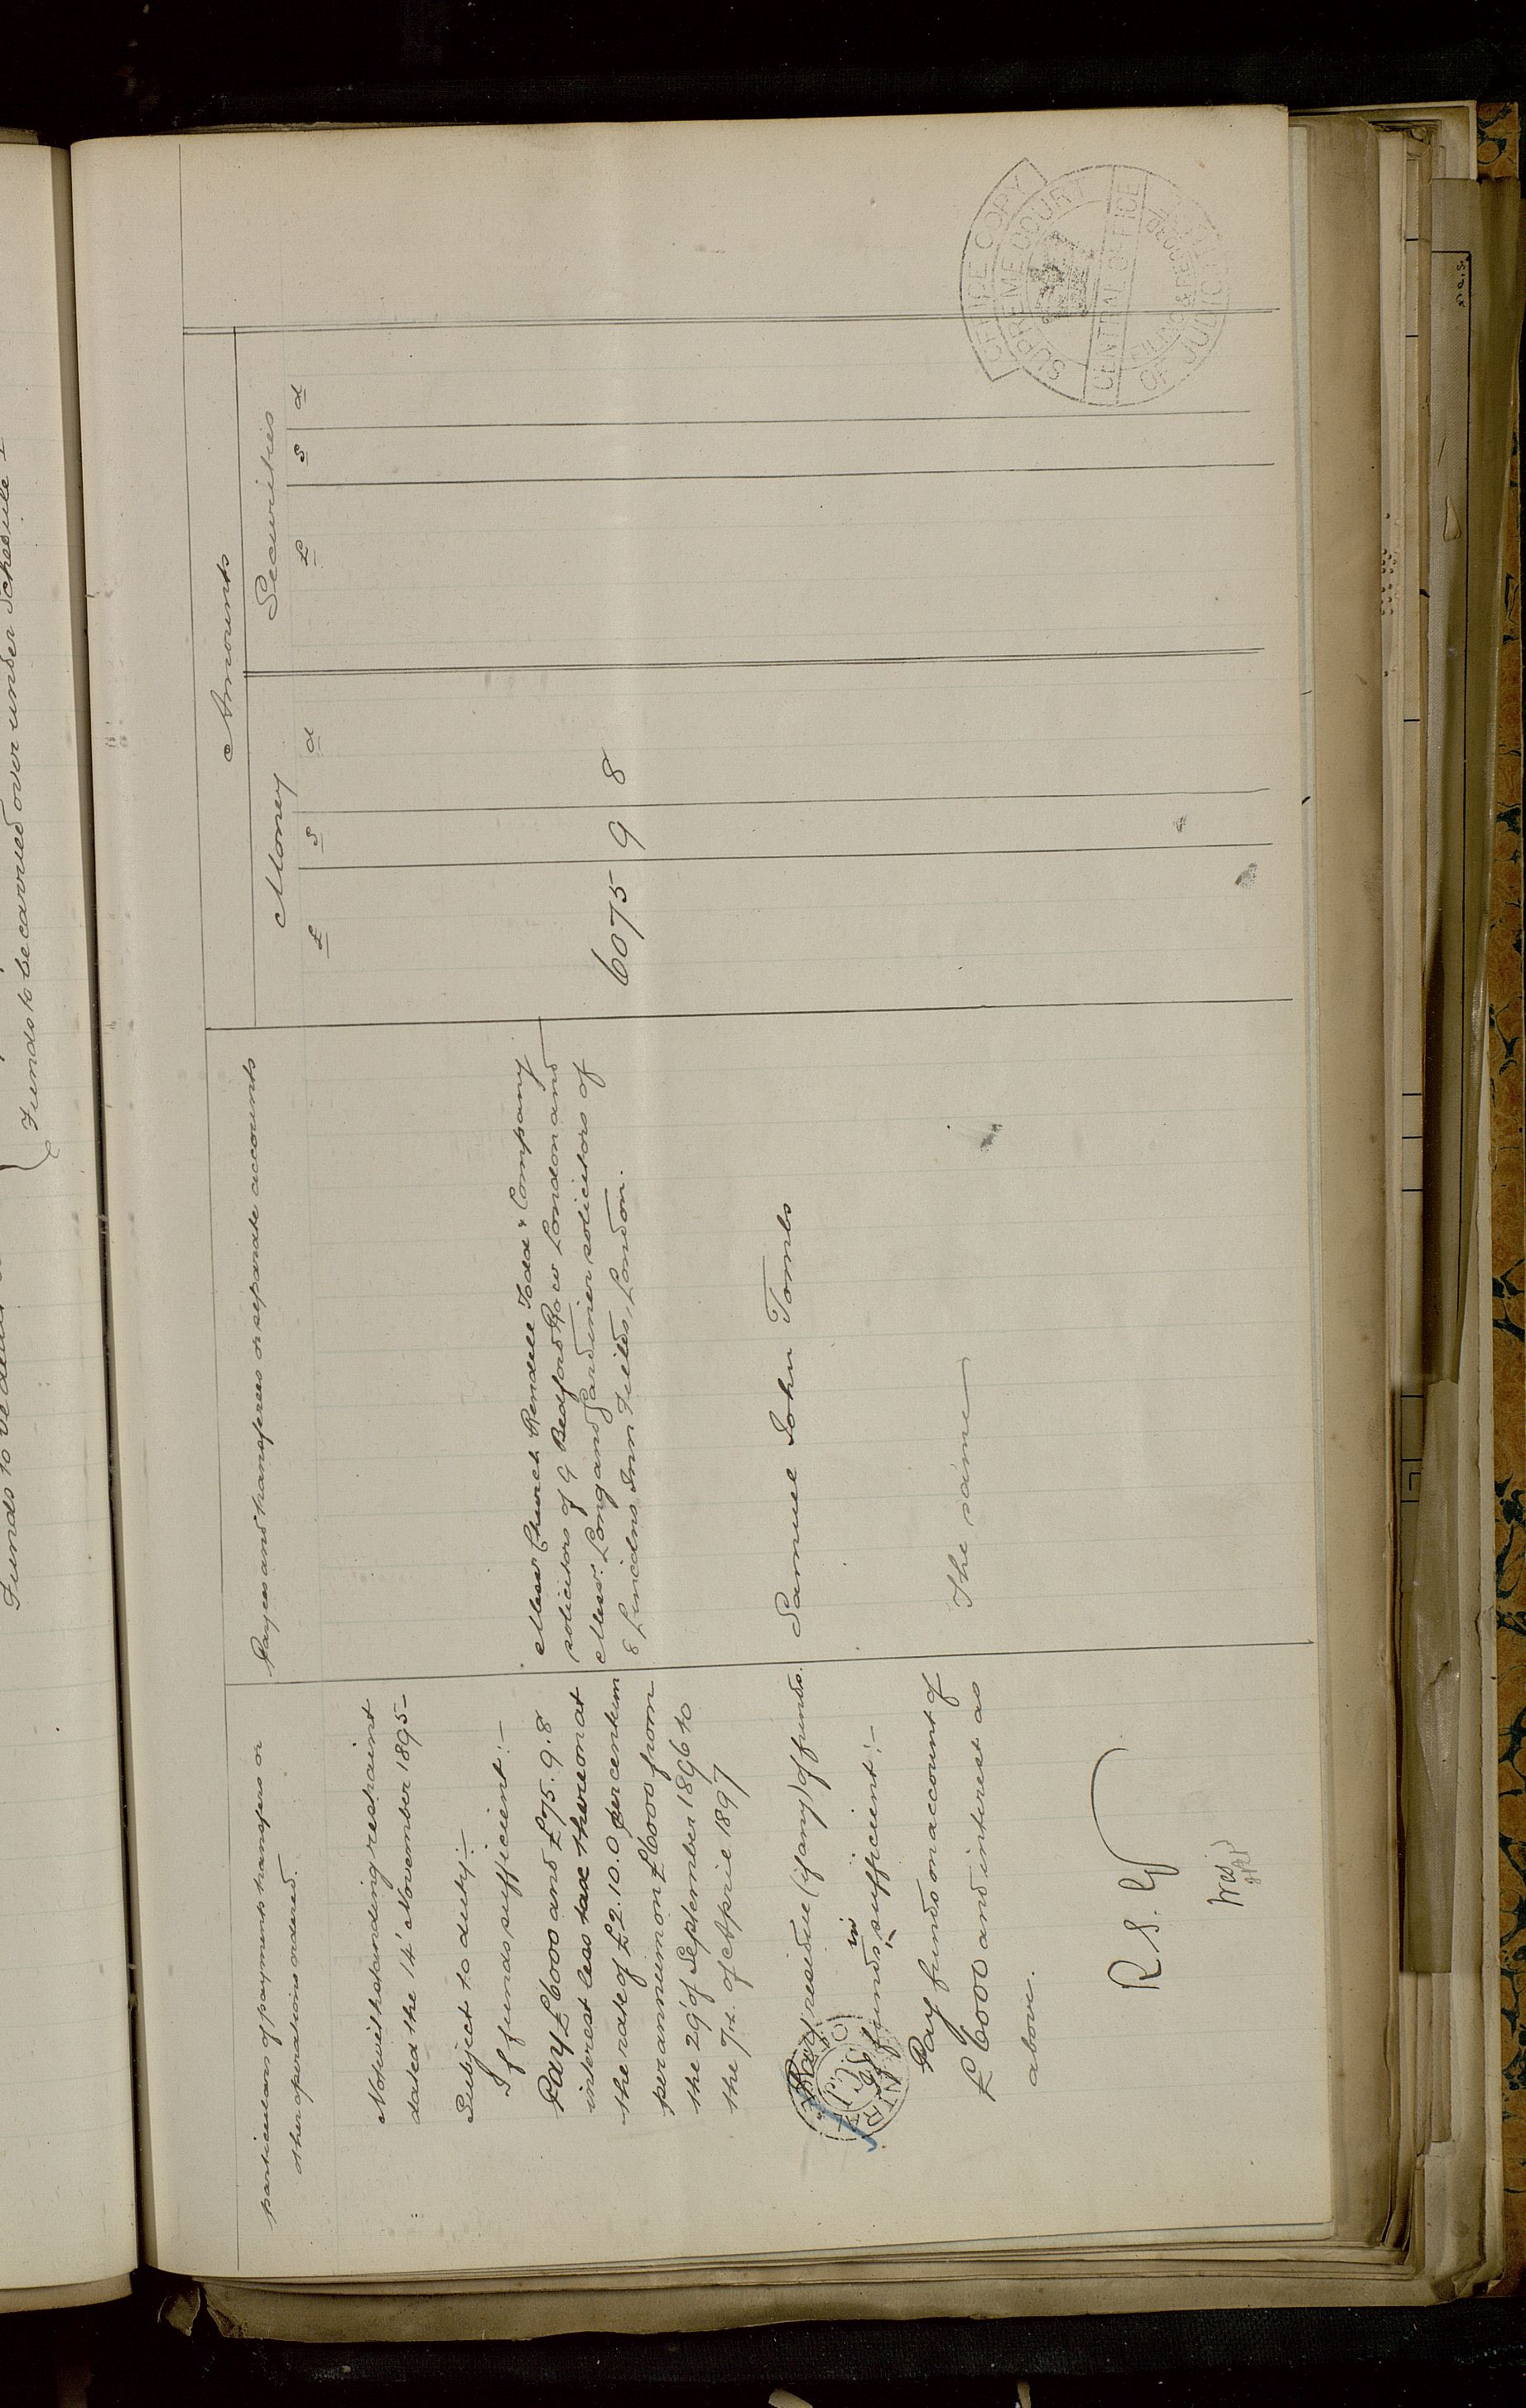 Funds to be carried over under Schedule
Funds to be
particulars of payments transfers or
other operations ordered.
Payees and transferees or separate accounts
Amounts
Money
Securities
£ s d
£ s d
Notwithstanding restraint
dated the 14' November 1895-
Subject to duty:-
If funds sufficient:-
Pay £6000 and £75.9.8
interest less tax thereon at
the rate of £2.10.0 per centum
per annum on £6000 from
the 29' of September 1896 to
the 7th. of April 1897
Messrs Church Rendell Todd & Company
solicitors of 9 Bedford Row London and
Messrs. Long and Gardiner solicitors of
8 Lincolns Inn Fields, London.
6075 9 8
Pay residue (if any) of funds.
Samuel John Tombs
If funds insufficient:-
Pay funds on account of
£6000 and interest as
above.
The same
R.S.G
OFFICE COPY
SUPREME COURT
CENTRAL OFFICE
FILING & RECORD
OF JUDICATURE